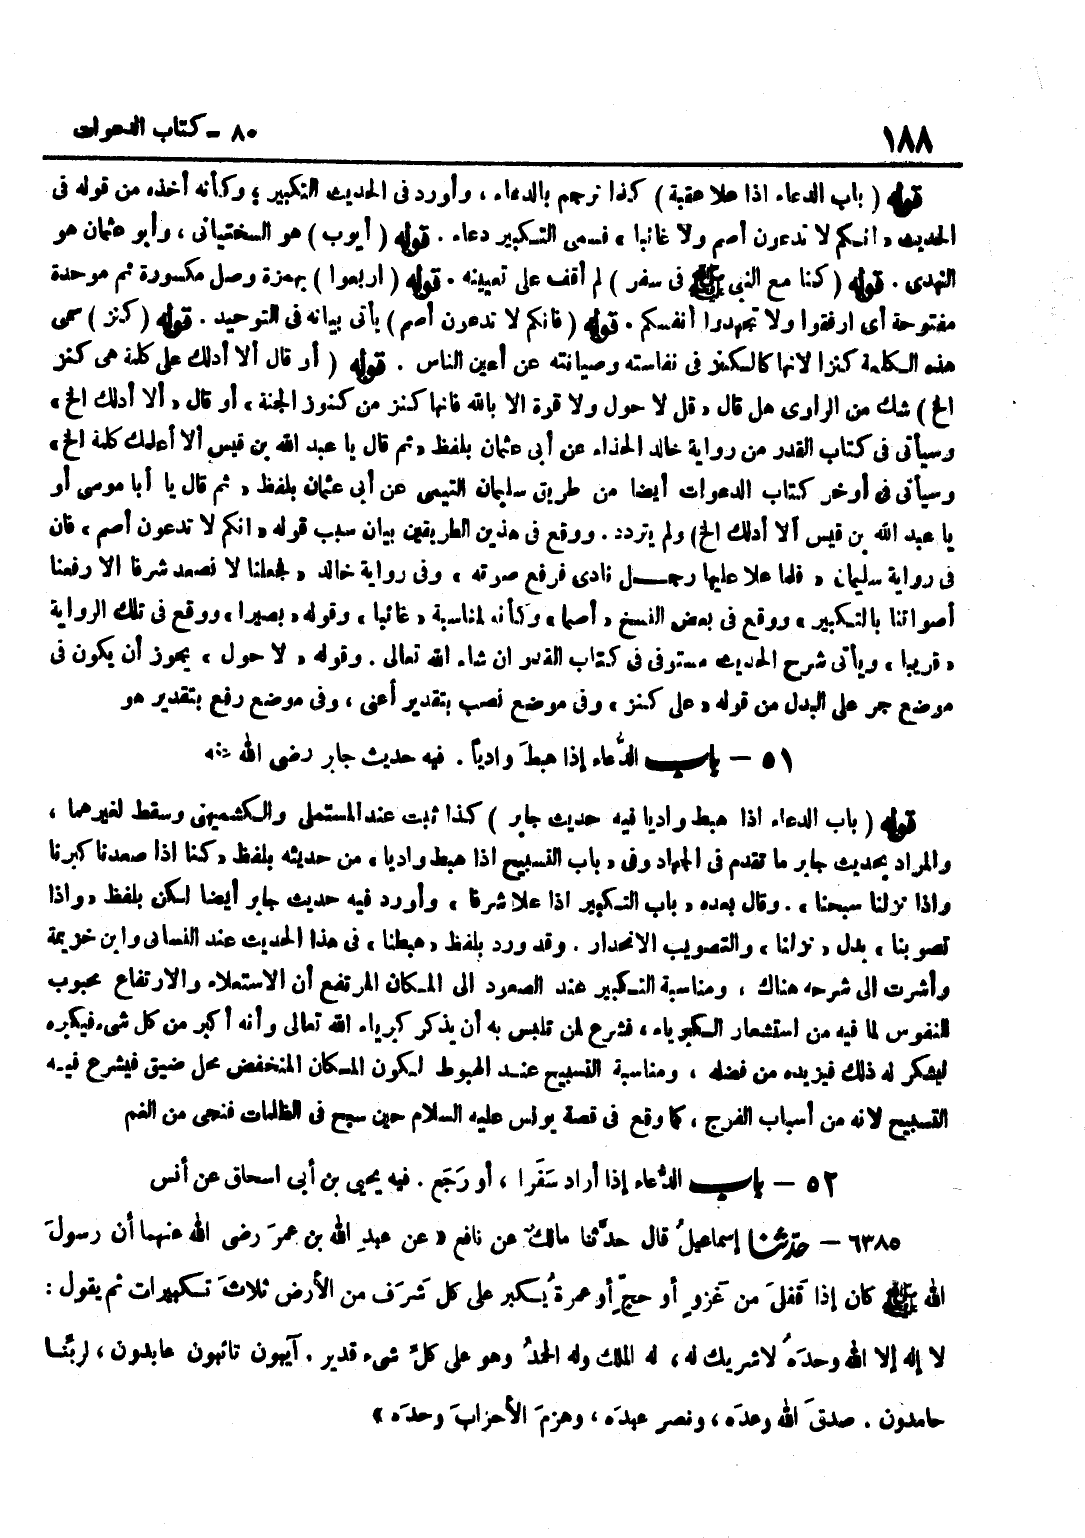 ١٨٨
٨٠ - كتاب الدعوات
قوله ( باب الدعاء اذا علا عقبة ) كذا ترجم بالدعاء ، وأورد فى الحديث التكبير ، وكأنه أخذه من قوله فى
الحديث « انكم لا تدعون أصم ولا غائبا » فسمى التكبير دعاء . قوله ( أيوب ) هو السختيانى ، وأبو عثمان هو
النهدى . قوله ( كنا مع النبى ﷺ فى سفر ) لم أقف على تعيينه . قوله ( اربعوا ) بهمزة وصل مكسورة ثم موحدة
مفتوحة أى ارفقوا ولا تجهدوا أنفسكم . قوله ( فانكم لا تدعون أصم ) يأتى بيانه فى التوحيد . قوله ( كنز ) سمى
هذه الكلمة كنزا لانها كالكنز فى نفاسته وصيانته عن أعين الناس . قوله ( أو قال ألا أدلك على كلمة هى كنز
الخ ) شك من الراوى هل قال « قل لا حول ولا قوة الا بالله فانها كنز من كنوز الجنة ، أو قال « ألا أدلك الخ »
وسيأتى فى كتاب القدر من رواية خالد الحذاء عن أبى عثمان بلفظ « ثم قال يا عبد الله بن قيس ألا أعلمك كلمة الخ »
وسيأتى فى أوخر كتاب الدعوات أيضا من طريق سليمان التيمى عن أبى عثمان بلفظ « ثم قال يا أبا موسى أو
يا عبد الله بن قيس ألا أدلك الخ ) ولم يتردد . ووقع فى هذين الطريقين بيان سبب قوله « انكم لا تدعون أصم » فان
فى رواية سليمان « فلما علا عليها رجــل نادى فرفع صوته » وفى رواية خالد « فجعلنا لا نصعد شرفا الا رفعنا
أصواتنا بالتكبير » ووقع فى بعض النسخ « أصما » وكأنه لمناسبة « غائبا » وقوله « بصيرا » ووقع فى تلك الرواية
« قريبا » ويأتى شرح الحديث مستوفى فى كتاب القدر ان شاء الله تعالى . وقوله « لا حول » يجوز أن يكون فى
موضع جر على البدل من قوله « على كنز » وفى موضع نصب بتقدير أعنى ، وفى موضع رفع بتقدير هو
٥١ - باب الدُّعاء إذا هبطَ وادياً . فيه حديث جابر رضى الله عنه
قوله ( باب الدعاء اذا هبط واديا فيه حديث جابر ) كذا ثبت عند المستملى والكشميهنى وسقط لغيرهما ،
والمراد بحديث جابر ما تقدم فى الجهاد وفى « باب التسبيح اذا هبط واديا » من حديثه بلفظ « كنا اذا صعدنا كبرنا
واذا نزلنا سبحنا » . وقال بعده « باب التكبير اذا علا شرفا » وأورد فيه حديث جابر أيضا لكن بلفظ « واذا
تصوبنا » بدل « نزلنا » والتصويب الانحدار . وقد ورد بلفظ « هبطنا » فى هذا الحديث عند النسائى وابن خزيمة
وأشرت الى شرحه هناك ، ومناسبة التكبير عند الصعود الى المكان المرتفع أن الاستعلاء والارتفاع محبوب
للنفوس لما فيه من استشعار الكبرياء ، فشرع لمن تلبس به أن يذكر كبرياء الله تعالى وأنه أكبر من كل شىء فيكبره
ليشكر له ذلك فيزيده من فضله ، ومناسبة التسبيح عنــد الهبوط لكون المكان المنخفض محل ضيق فيشرع فيــه
التسبيح لانه من أسباب الفرج ، كما وقع فى قصة يونس عليه السلام حين سبح فى الظلمات فنجى من الغم
٥٢ - باب الدُّعاء إذا أراد سَفَرا ، أو رَجَع . فيه يحيى بن أبى اسحاق عن أنس
٦٣٨٥ - حدثنا إسماعيلُ قال حدَّثنا مالكٌ عن نافع « عن عبدِ الله بن عمرَ رضى الله عنهما أن رسولَ
الله ﷺ كان إذا قَفَلَ من غَزوٍ أو حجٍّ أو عمرةٍ يُكبر على كل شَرَف من الأرض ثلاثَ تكبيرات ثم يقول :
لا إله إلا الله وحدَهُ لا شريك له ، له الملك وله الحمدُ وهو على كلِّ شىء قدير . آيبون تائبون عابدون ، لربِّنــا
حامدون . صدقَ الله وعدَه ، ونصر عبدَه ، وهزمَ الأحزابَ وحدَه »